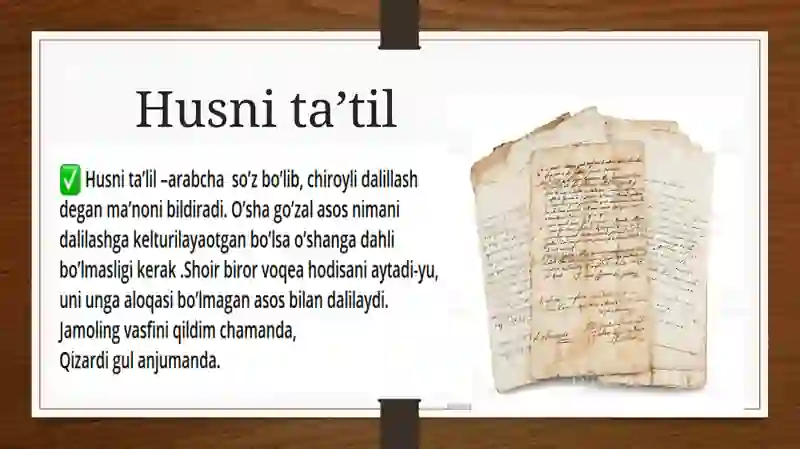 Husni ta’til
✅ Husni ta’lil –arabcha so’z bo’lib, chiroyli dalillash
degan ma’noni bildiradi. O’sha go’zal asos nimani
dalilashga kelturilayaotgan bo’lsa o’shanga dahli
bo’lmasligi kerak .Shoir biror voqea hodisani aytadi-yu,
uni unga aloqasi bo’lmagan asos bilan dalilaydi.
Jamoling vasfini qildim chamanda,
Qizardi gul anjumanda.